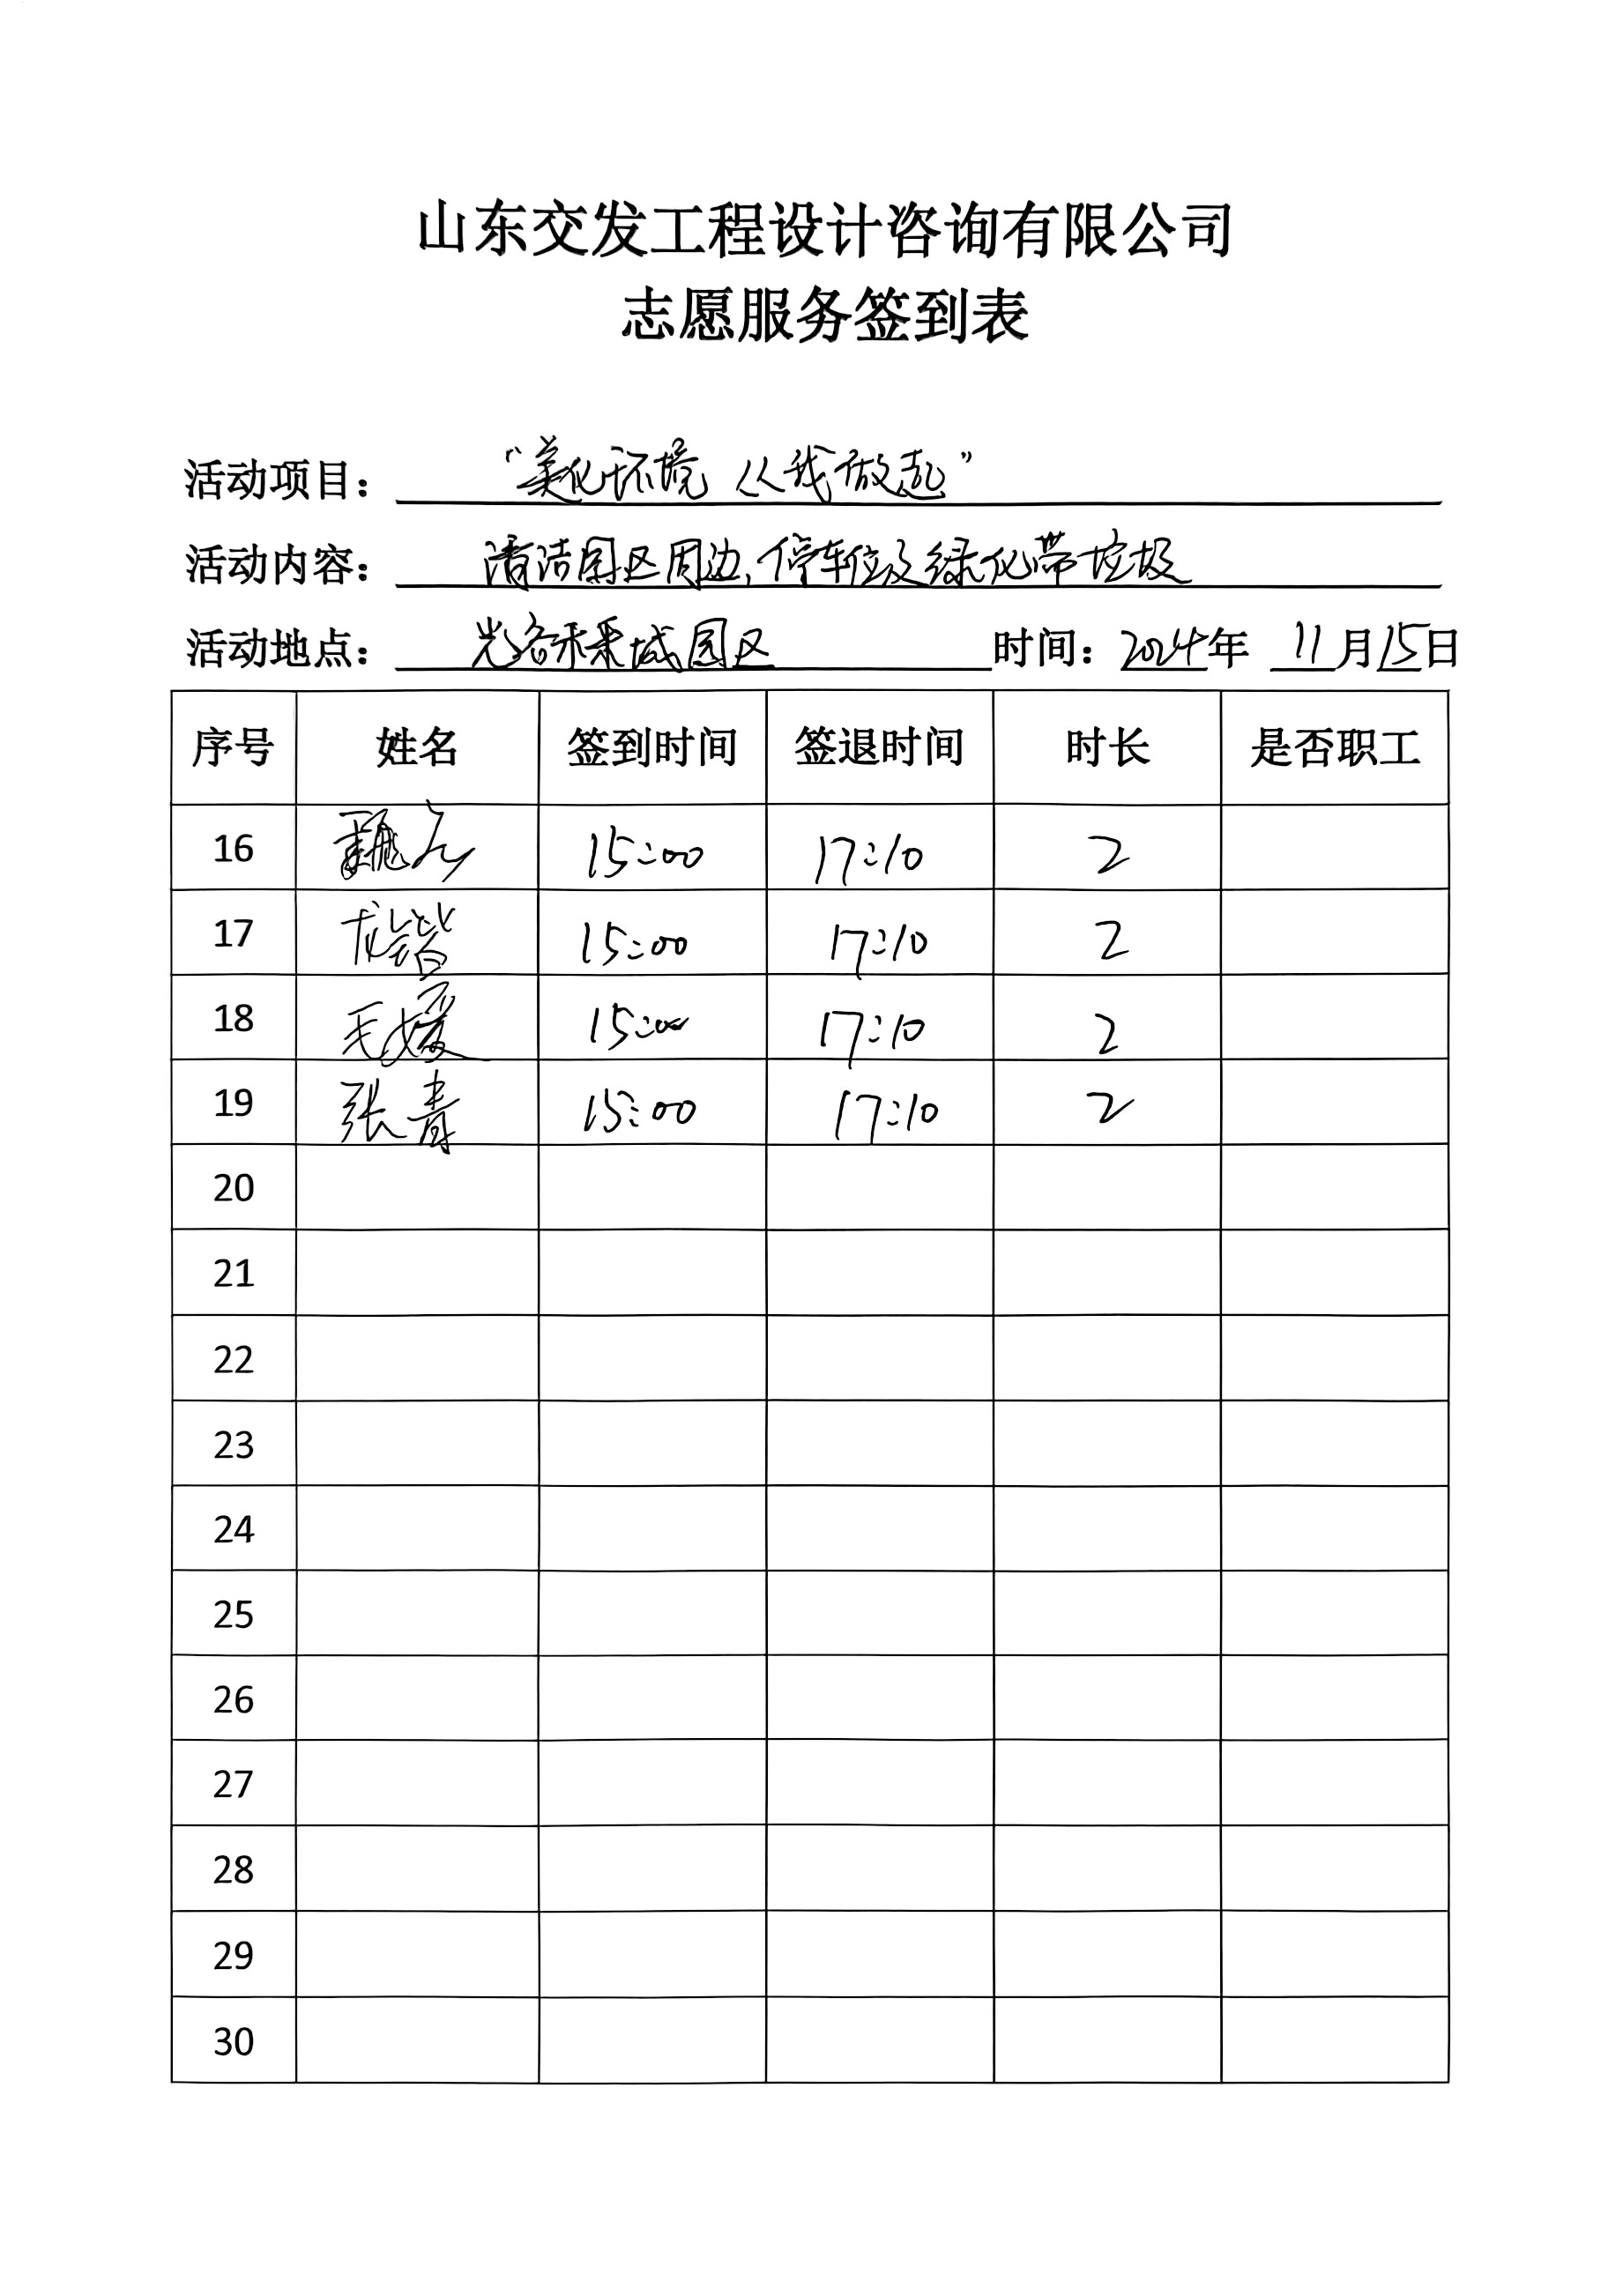 山东交发工程设计咨询有限公司
志愿服务签到表
活动项目： “美化环境 从我做起”
活动内容： 清洁园区周边、停车位及绿化带垃圾
活动地点： 未来城园区 时间：2024年 11月15日
序号 姓名 签到时间 签退时间 时长 是否职工
16 魏 15:00 17:10 2
17 15:00 17:10 2
18 毛媛 15:00 17:10 2
19 张青 15:00 17:10 2
20
21
22
23
24
25
26
27
28
29
30